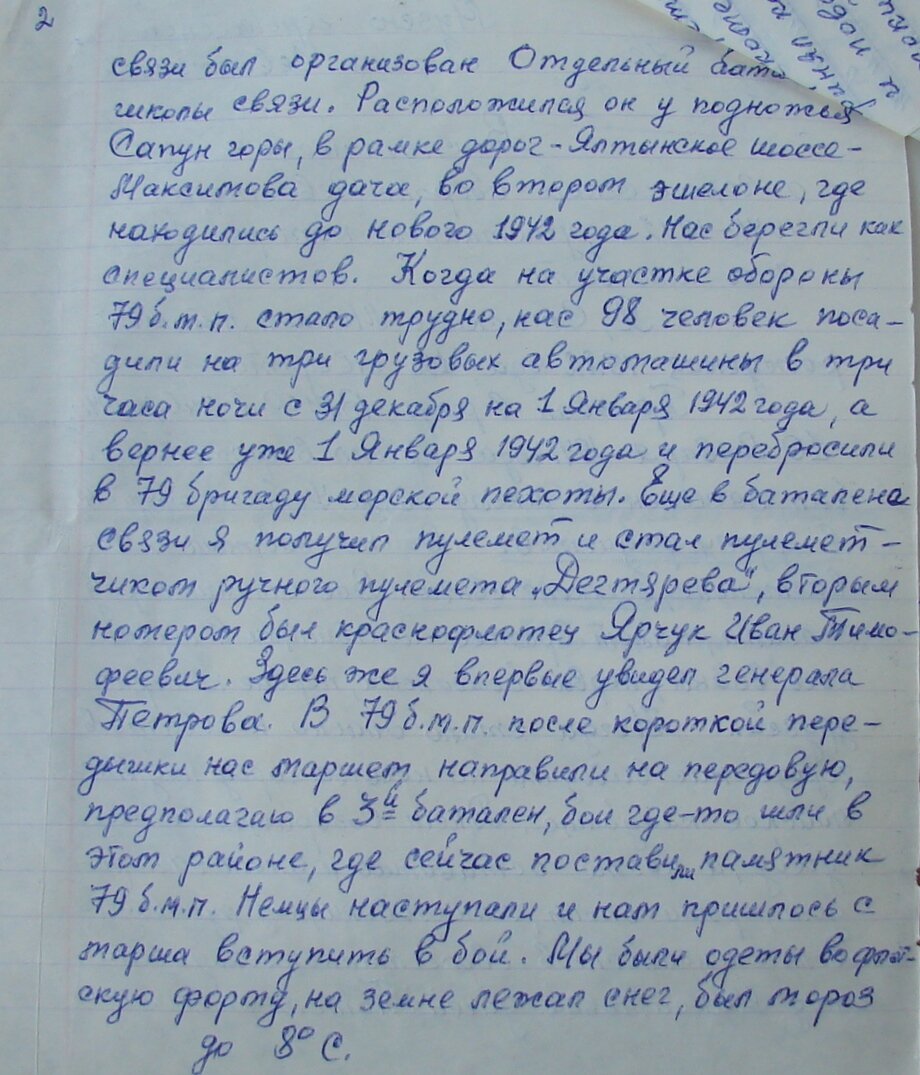 2
связи был организован Отдельный бата
школы связи. Расположился он у подножья
Сапун горы, в рамке дорог - Ялтынское шоссе -
Максимова дача, во втором эшелоне, где
находились до нового 1942 года. Нас берегли как
специалистов. Когда на участке обороны
79 б.м.п. стало трудно, нас 98 человек поса-
дили на три грузовых автомашины в три
часа ночи с 31 декабря на 1 Января 1942 года, а
вернее уже 1 Января 1942 года и перебросили
в 79 бригаду морской пехоты. Еще в баталена
связи я получил пулемет и стал пулемет-
чиком ручного пулемета „Дегтярева", вторым
номером был краснофлотец Ярчук Иван Тимо-
феевич. Здесь же я впервые увидел генерала
Петрова. В 79 б.м.п. после короткой пере-
дышки нас маршем направили на передовую,
предполагаю в 3й батален, бои где-то шли в
этом районе, где сейчас поставили памятник
79 б.м.п. Немцы наступали и нам пришлось с
марша вступить в бой. Мы были одеты во флот-
скую форму, на земле лежал снег, был мороз
до 8° С.